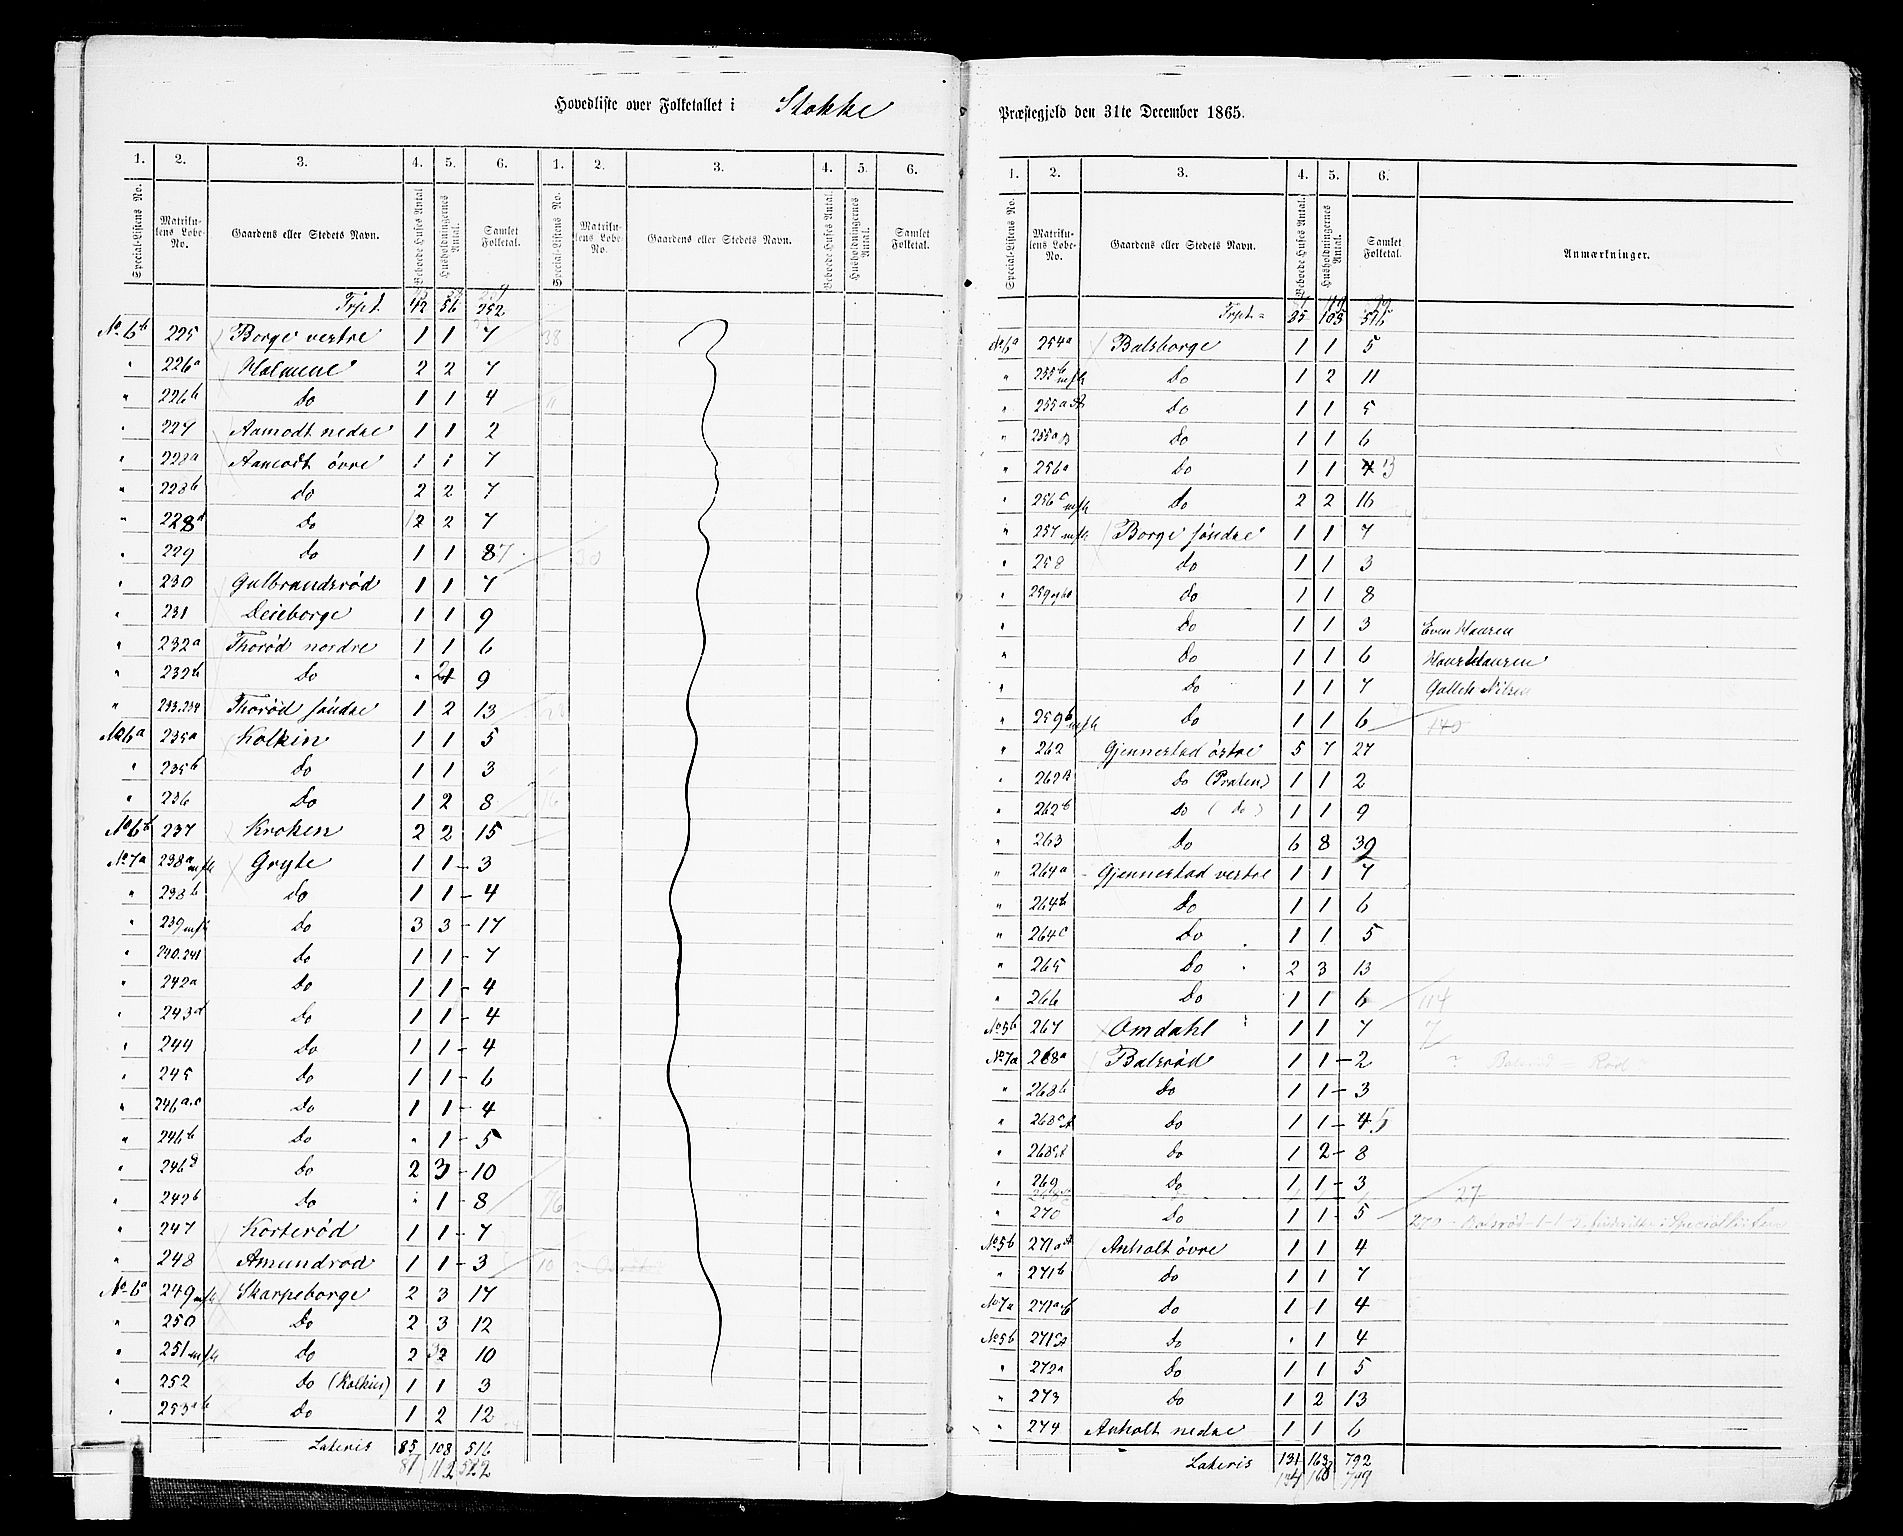 Hovedliste over Folketallet i Stokke
1. 2. 3. 4. 5. 6. 1. 2. 3. 4. 5. 6.
Special-Listens No. Matrikulens Løbe-No. Gaardens eller Stedets Navn. Beboede Huses Antal. Husholdningernes Antal. Samlet Folketal. Special-Listens No. Matrikulens Løbe-No. Gaardens eller Stedets Navn. Beboede Huses Antal. Husholdningernes Antal. Samlet Folketal.
Trpt. 42 56 252
No. 6b 225 Borge vestre 1 1 7 38
" 226a Holmene 2 2 7
" 226b Do 1 1 4 11
" 227 Aamodt nedre 1 1 2
" 228a Aamodt övre 1 1 7
" 228b do 2 2 7
" 228d Do 2 2 7
" 229 Do 1 1 87 30
" 230 Gulbrandsrød 1 1 7
" 231 Deieborge 1 1 9
" 232a Thorød nordre 1 1 6
" 232b Do " 21 9
" 233.234 Thorød søndre 1 2 13
No 6a 235a Kolkin 1 1 5
" 235b Do 1 1 3
" 236 Do 1 2 8 16
No 6b 237 Kroken 2 2 15
No 7a 238a m/fl Gryte 1 1 - 3
" 238b Do 1 1 - 4
" 239 m/fl Do 3 3 - 17
" 240.241 Do 1 1 - 7
" 242a Do 1 1 - 4
" 243d Do 1 1 - 4
" 244 Do 1 1 - 4
" 245 Do 1 1 - 6
" 246a.c Do 1 1 - 4
" 246b Do " 1 - 5
" 246d Do 2 3 - 10
" 242b Do " 1 - 8 76
" 247 Korterød 1 1 - 7
" 248 Amundrød 1 1 - 3 10
No. 6a 249 m/fl Skarpeborge 2 3 17
" 250 Do 2 3 12
" 251 m/fl Do 2 32 10
" 252 Do (Kolkin) 1 1 3
" 253ab Do 1 2 12
Lateris 85 108 516
87 112 522
Præstegjeld den 31te December 1865.
1. 2. 3. 4. 5. 6.
Special-Listens No. Matrikulens Løbe-No. Gaardens eller Stedets Navn. Beboede Huses Antal. Husholdningernes Antal. Samlet Folketal. Anmærkninger.
Trpt. 85 108 516
No 6a 254a Balsborge 1 1 5
" 255b m/fl Do 1 2 11
" 255aA Do 1 1 5
" 255aB Do 1 1 6
" 256a Do 1 1 4 3
" 256c m/fl Do 2 2 16
" 257 m/fl Borge søndre 1 1 7
" 258 Do 1 1 3
" 259 do 1 1 8
" Do 1 1 3 Even Hansen
" Do 1 1 6 Hans Hansen
" Do 1 1 7 Nilsen
" 259b m/fl Do 1 1 6 140
" 262 Gjennestad östre 5 7 27
" 262A Do (Praten) 1 1 2
" 262b Do (Do) 1 1 9
" 263 Do 6 8 39
" 264a Gjennestad vestre 1 1 7
" 264b Do 1 1 6
" 264c Do 1 1 5
" 265 Do 2 3 13
" 266 Do 1 1 6 114
No 5b 267 Omdahl 1 1 7 7
No 7a 268a Balsrød 1 1 - 2
" 268b Do 1 1 - 3
" 268cA Do 1 1 - 4 5
" 268cB Do 1 2 - 8
" 269 Do 1 1 - 3 27
270 Do 1 1 - 5 270 - Balsrød - 1 - 1 - 5
No 5b 271aA Anholt övre 1 1 4
" 271b Do 1 1 7
No 7a 271a Do 1 1 4
No 5b 271 Do " 1 4
" 272a Do 1 1 5
" 273 Do 1 2 13
" 274 Anholt nedre 1 1 6
Lateris 131 163 792
134 168 799